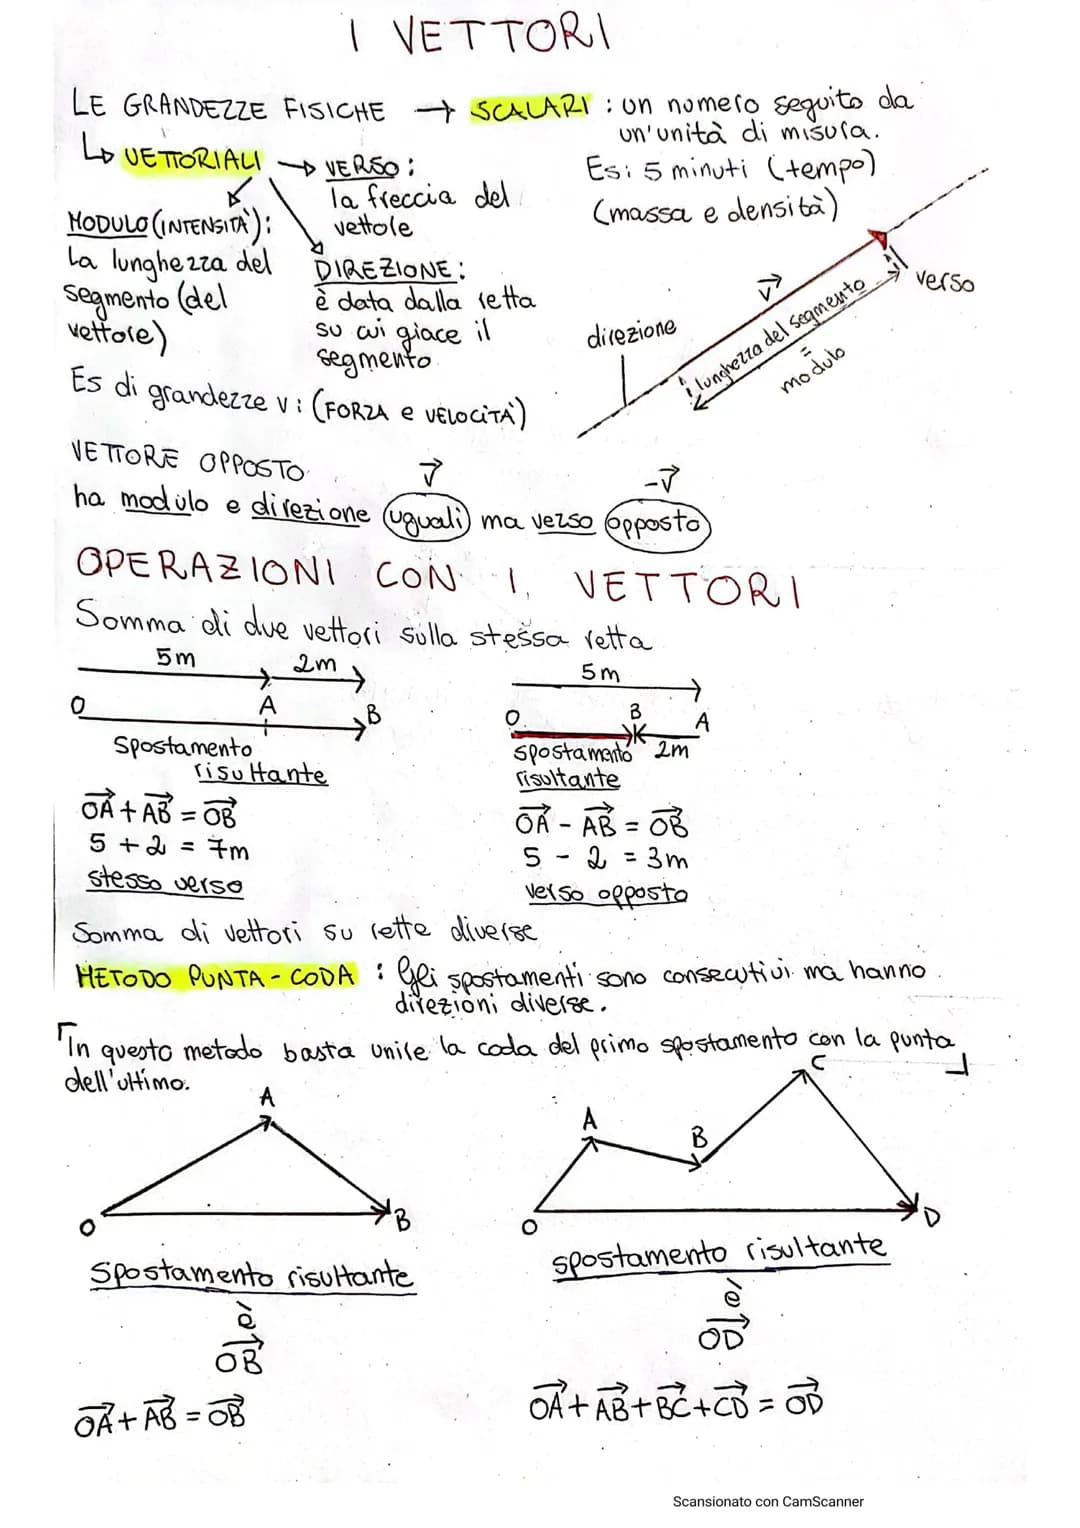 I VETTORI
LE GRANDEZZE FISICHE → SCALARI : un numero seguito da
un'unità di misura.
↳ VETTORIALI → VERSO :
la freccia del
vettore
Es: 5 minuti (tempo)
(massa e densità)
MODULO (INTENSITÀ) :
La lunghezza del
segmento (del
vettore)
DIREZIONE :
è data dalla retta
su cui giace il
segmento
direzione
v⃗
lunghezza del segmento
=
modulo
verso
Es di grandezze v : (FORZA e VELOCITÀ)
VETTORE OPPOSTO
v⃗
-v⃗
ha modulo e direzione uguali ma verso opposto
OPERAZIONI CON I VETTORI
Somma di due vettori sulla stessa retta
5m 2m
O A B
Spostamento
risultante
OA⃗ + AB⃗ = OB⃗
5 + 2 = 7m
stesso verso
5m
O B A
spostamento 2m
risultante
OA⃗ - AB⃗ = OB⃗
5 - 2 = 3m
verso opposto
Somma di vettori su rette diverse
METODO PUNTA-CODA : Gli spostamenti sono consecutivi ma hanno
direzioni diverse.
In questo metodo basta unire la coda del primo spostamento con la punta
dell'ultimo.
A
O B
Spostamento risultante
è
OB⃗
OA⃗ + AB⃗ = OB⃗
C
A B
O D
spostamento risultante
è
OD⃗
OA⃗ + AB⃗ + BC⃗ + CD⃗ = OD⃗
Scansionato con CamScanner